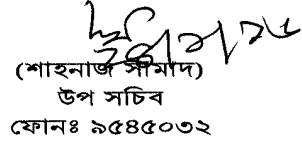 (শাহনাজ সামাদ)
উপ সচিব
ফোনঃ ৯৫৪৫০৩২